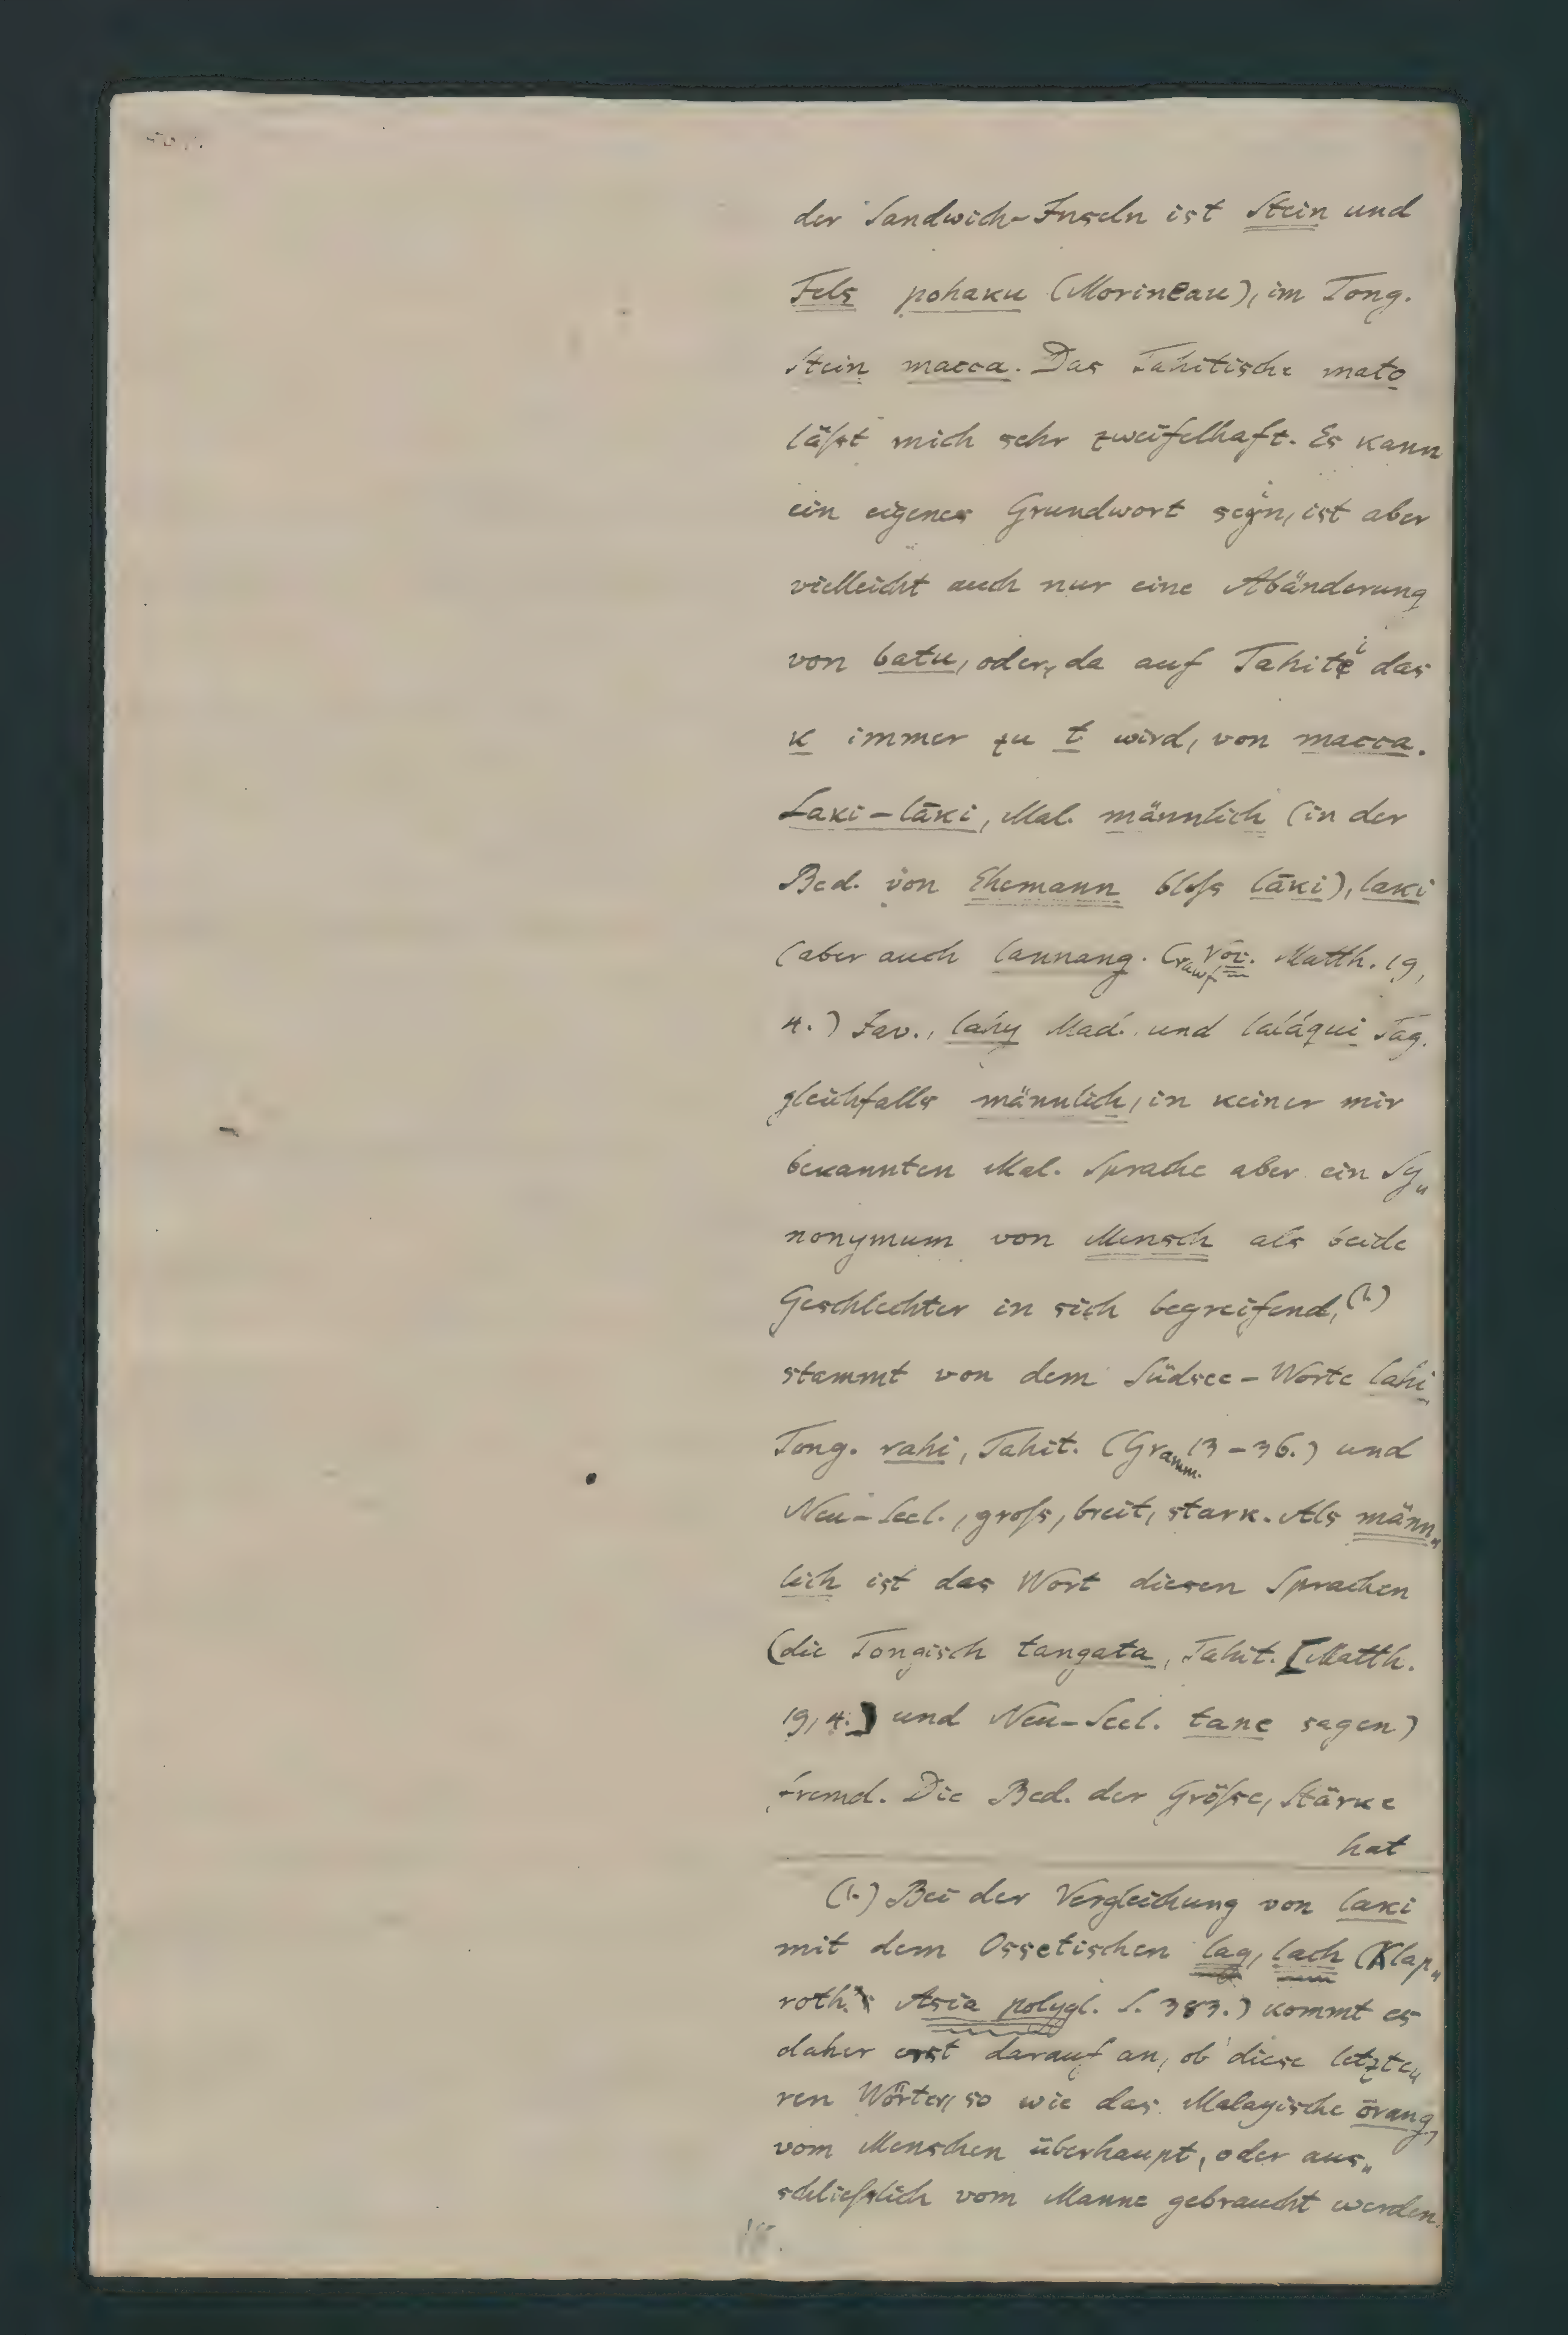 der Sandwich-Inseln ist Stein und
Fels pohaku (Morineau), im Tong.
Stein macca. Das Tahitische mato
läßt mich sehr zweifelhaft. Es kann
ein eigenes Grundwort sein, ist aber
vielleicht auch nur eine Abänderung
von batu, oder, da auf Tahiti das
k immer zu t wird, von macca.
Laki-lāki, Mal. männlich (in der
Bed. von Ehemann bloß lāki), laki
(aber auch lannang. Crawf. Voc. Matth. 19,
4.) Jav., lahy Mad. und laláqui Tag.
gleichfalls männlich, in keiner mir
bekannten Mal. Sprache aber ein Sy„
nonymum von Mensch als beide
Geschlechter in sich begreifend, (1.)
stammt von dem Südsee-Worte lahi
Tong. rahi, Tahit. (Gramm. 13-36.) und
Neu-Seel., groß, breit, stark. Als männ„
lich ist das Wort diesen Sprachen
(die Tongisch tangata, Tahit. [Matth.
19, 4.] und Neu-Seel. tane sagen)
fremd. Die Bed. der Größe, Stärke
hat
(1.) Bei der Vergleichung von laki
mit dem Ossetischen lag, lach (Klap„
roth's Asia polygl. S. 383.) kommt es
daher erst darauf an, ob diese letzte„
ren Wörter, so wie das Malayische ōrang,
vom Menschen überhaupt, oder aus„
schließlich vom Manne gebraucht werden.